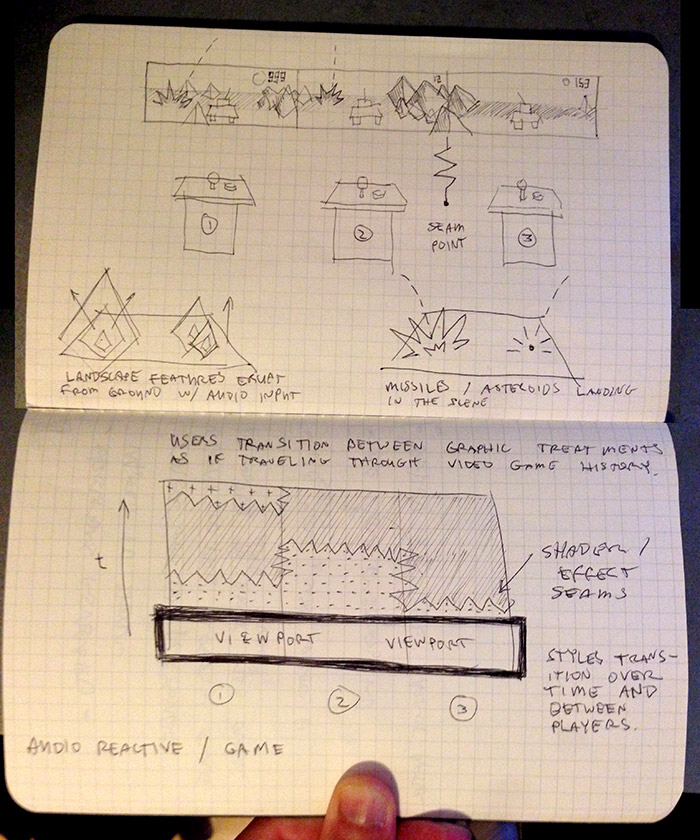 999
12
153
1
2
3
SEAM
POINT
LANDSCAPE FEATURES ERUPT
FROM GROUND W/ AUDIO INPUT
MISSILES / ASTEROIDS LANDING
IN THE SCENE
USERS TRANSITION BETWEEN GRAPHIC TREATMENTS
AS IF TRAVELING THROUGH VIDEO GAME HISTORY.
t
SHADER /
EFFECT
SEAMS
VIEWPORT VIEWPORT
1 2 3
STYLES TRANS-
ITION OVER
TIME AND
BETWEEN
PLAYERS.
AUDIO REACTIVE / GAME